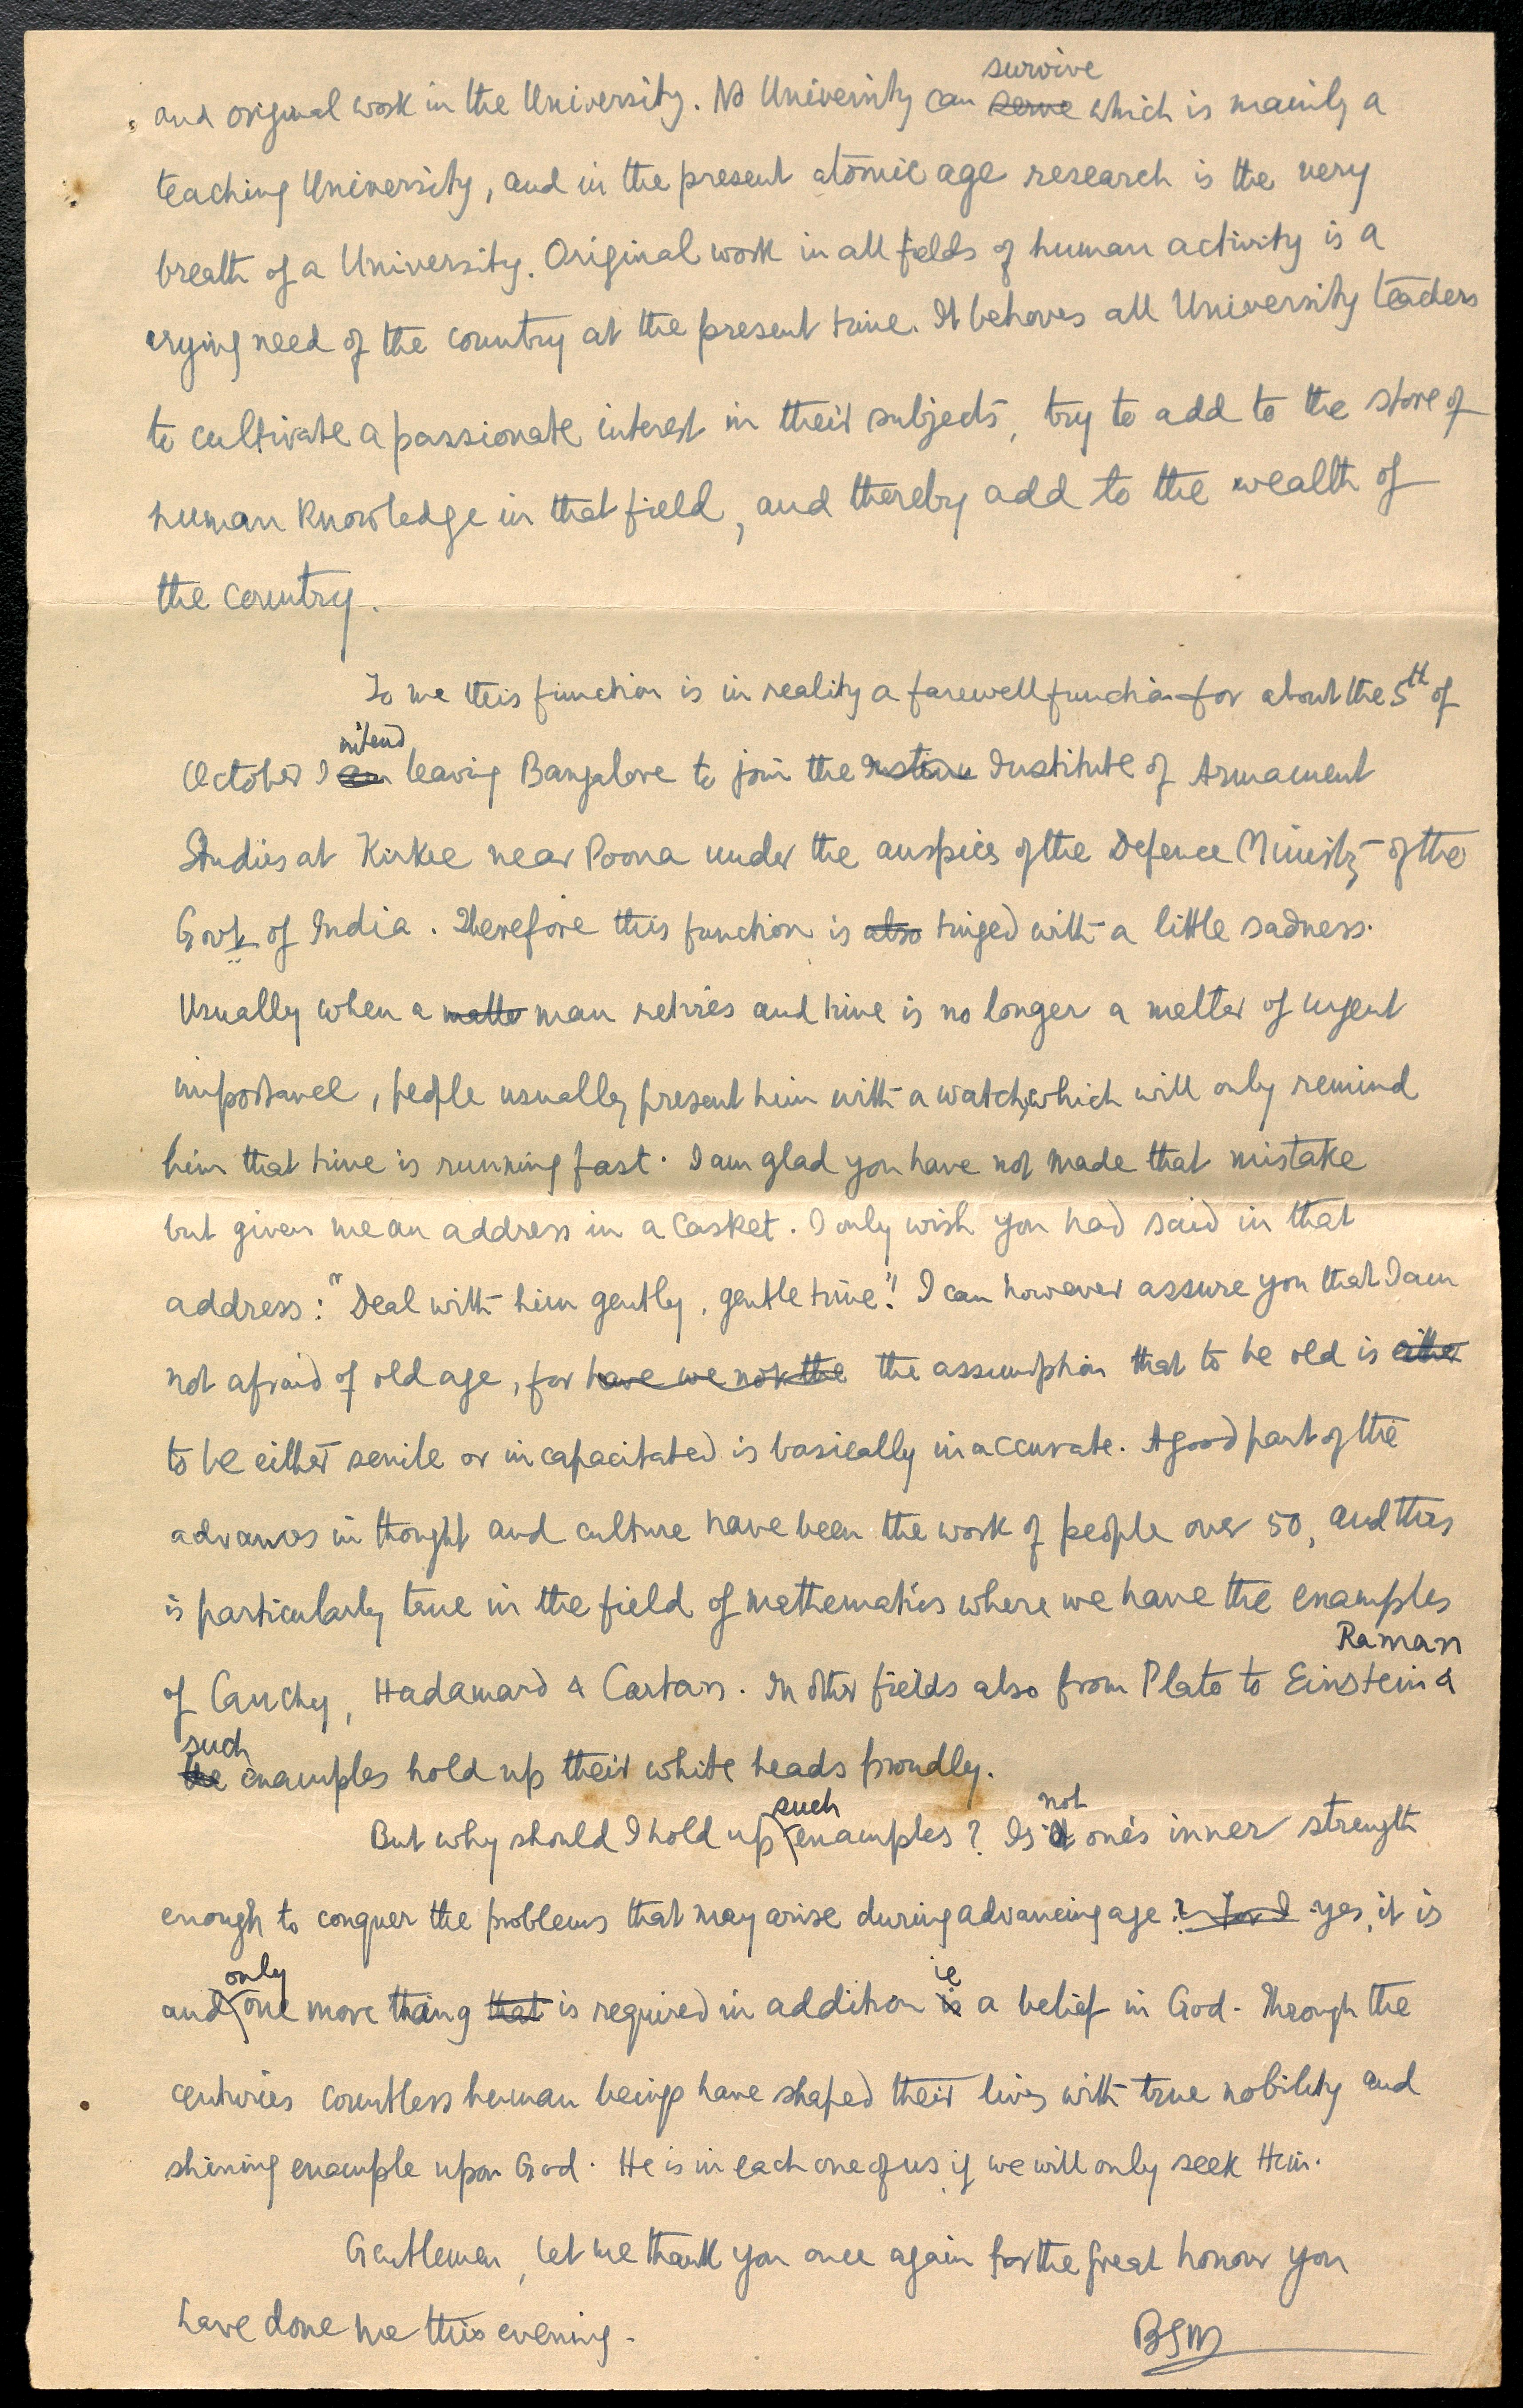 survive
and original work in the University. No University can serve which is mainly a
teaching University, and in the present atomic age research is the very
breath of a University. Original work in all fields of human activity is a
crying need of the country at the present time. It behoves all University teachers
to cultivate a passionate interest in their subjects, try to add to the store of
human knowledge in that field, and thereby add to the wealth of
the country.
To me this function is in reality a farewell function for about the 5th of
intend
October I am leaving Bangalore to join the Institu Institute of Armament
Studies at Kirkee near Poona under the auspices of the Defence Ministry of the
Govt. of India. Therefore this function is also tinged with a little sadness.
Usually when a matte man retires and time is no longer a matter of urgent
importance, people usually present him with a watch, which will only remind
him that time is running fast. I am glad you have not made that mistake
but given me an address in a casket. I only wish you had said in that
address: "Deal with him gently, gentle time." I can however assure you that I am
not afraid of old age, for have we not the the assumption that to be old is either
to be either senile or incapacitated is basically inaccurate. A good part of the
advances in thought and culture have been the work of people over 50, and this
is particularly true in the field of mathematics where we have the examples
Raman
of Cauchy, Hadamard & Cartan. In other fields also from Plato to Einstein &
such
the examples hold up their white heads proudly.
such not
But why should I hold up examples? Is it one's inner strength
enough to conquer the problems that may arise during advancing age? For I yes, it is
only ie
and one more thing that is required in addition is a belief in God. Through the
centuries countless human beings have shaped their lives with true nobility and
shining example upon God. He is in each one of us if we will only seek Him.
Gentlemen, let me thank you once again for the great honour you
have done me this evening.
BSM